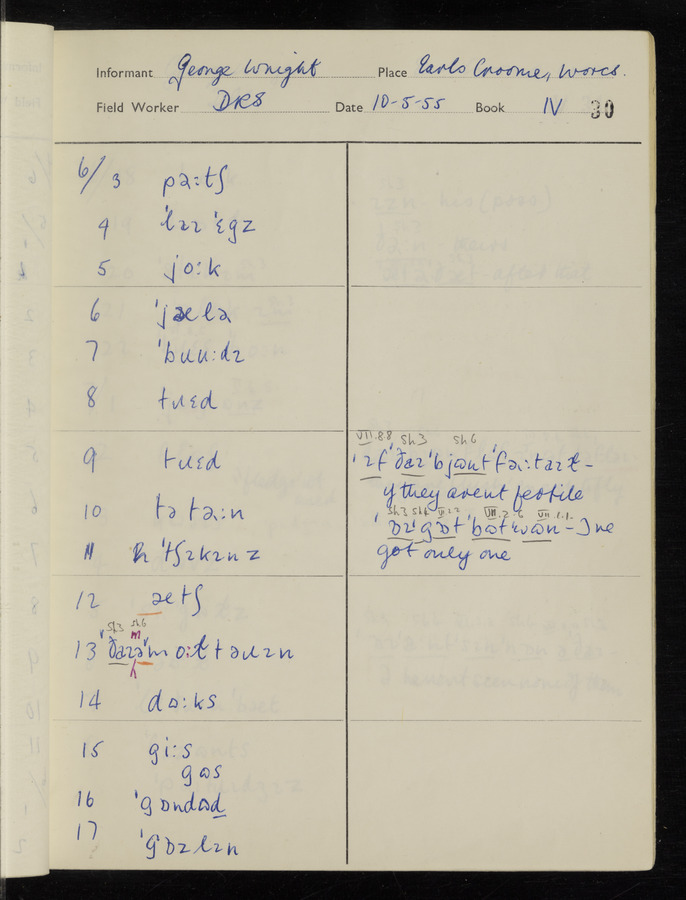 Informant George Wright Place Earls Croome, Worcs.
Field Worker DRS Date 10-5-55 Book IV 30
6/3 pəːtʃ
4 ˈlɪɪ ˈɛgz
5 joːk
6 ˈjælə
7 ˈbuuːdɪ
8 tuɛd
9 tuɛd
10 tə təːn
11 ˈtʃɪkɪnz
12 ætʃ
sh3 sh6
13
14 dɒːks
15 giːs
gɒs
16 ˈgɒndəd
17 ˈgɒzlɪn
VII.8.8 sh3 sh6
ˈɪf ˈðaɪ ˈbjɒunt ˈfəːtaɪt –
if they arent fertile
sh3 sh6
– I've
got only one